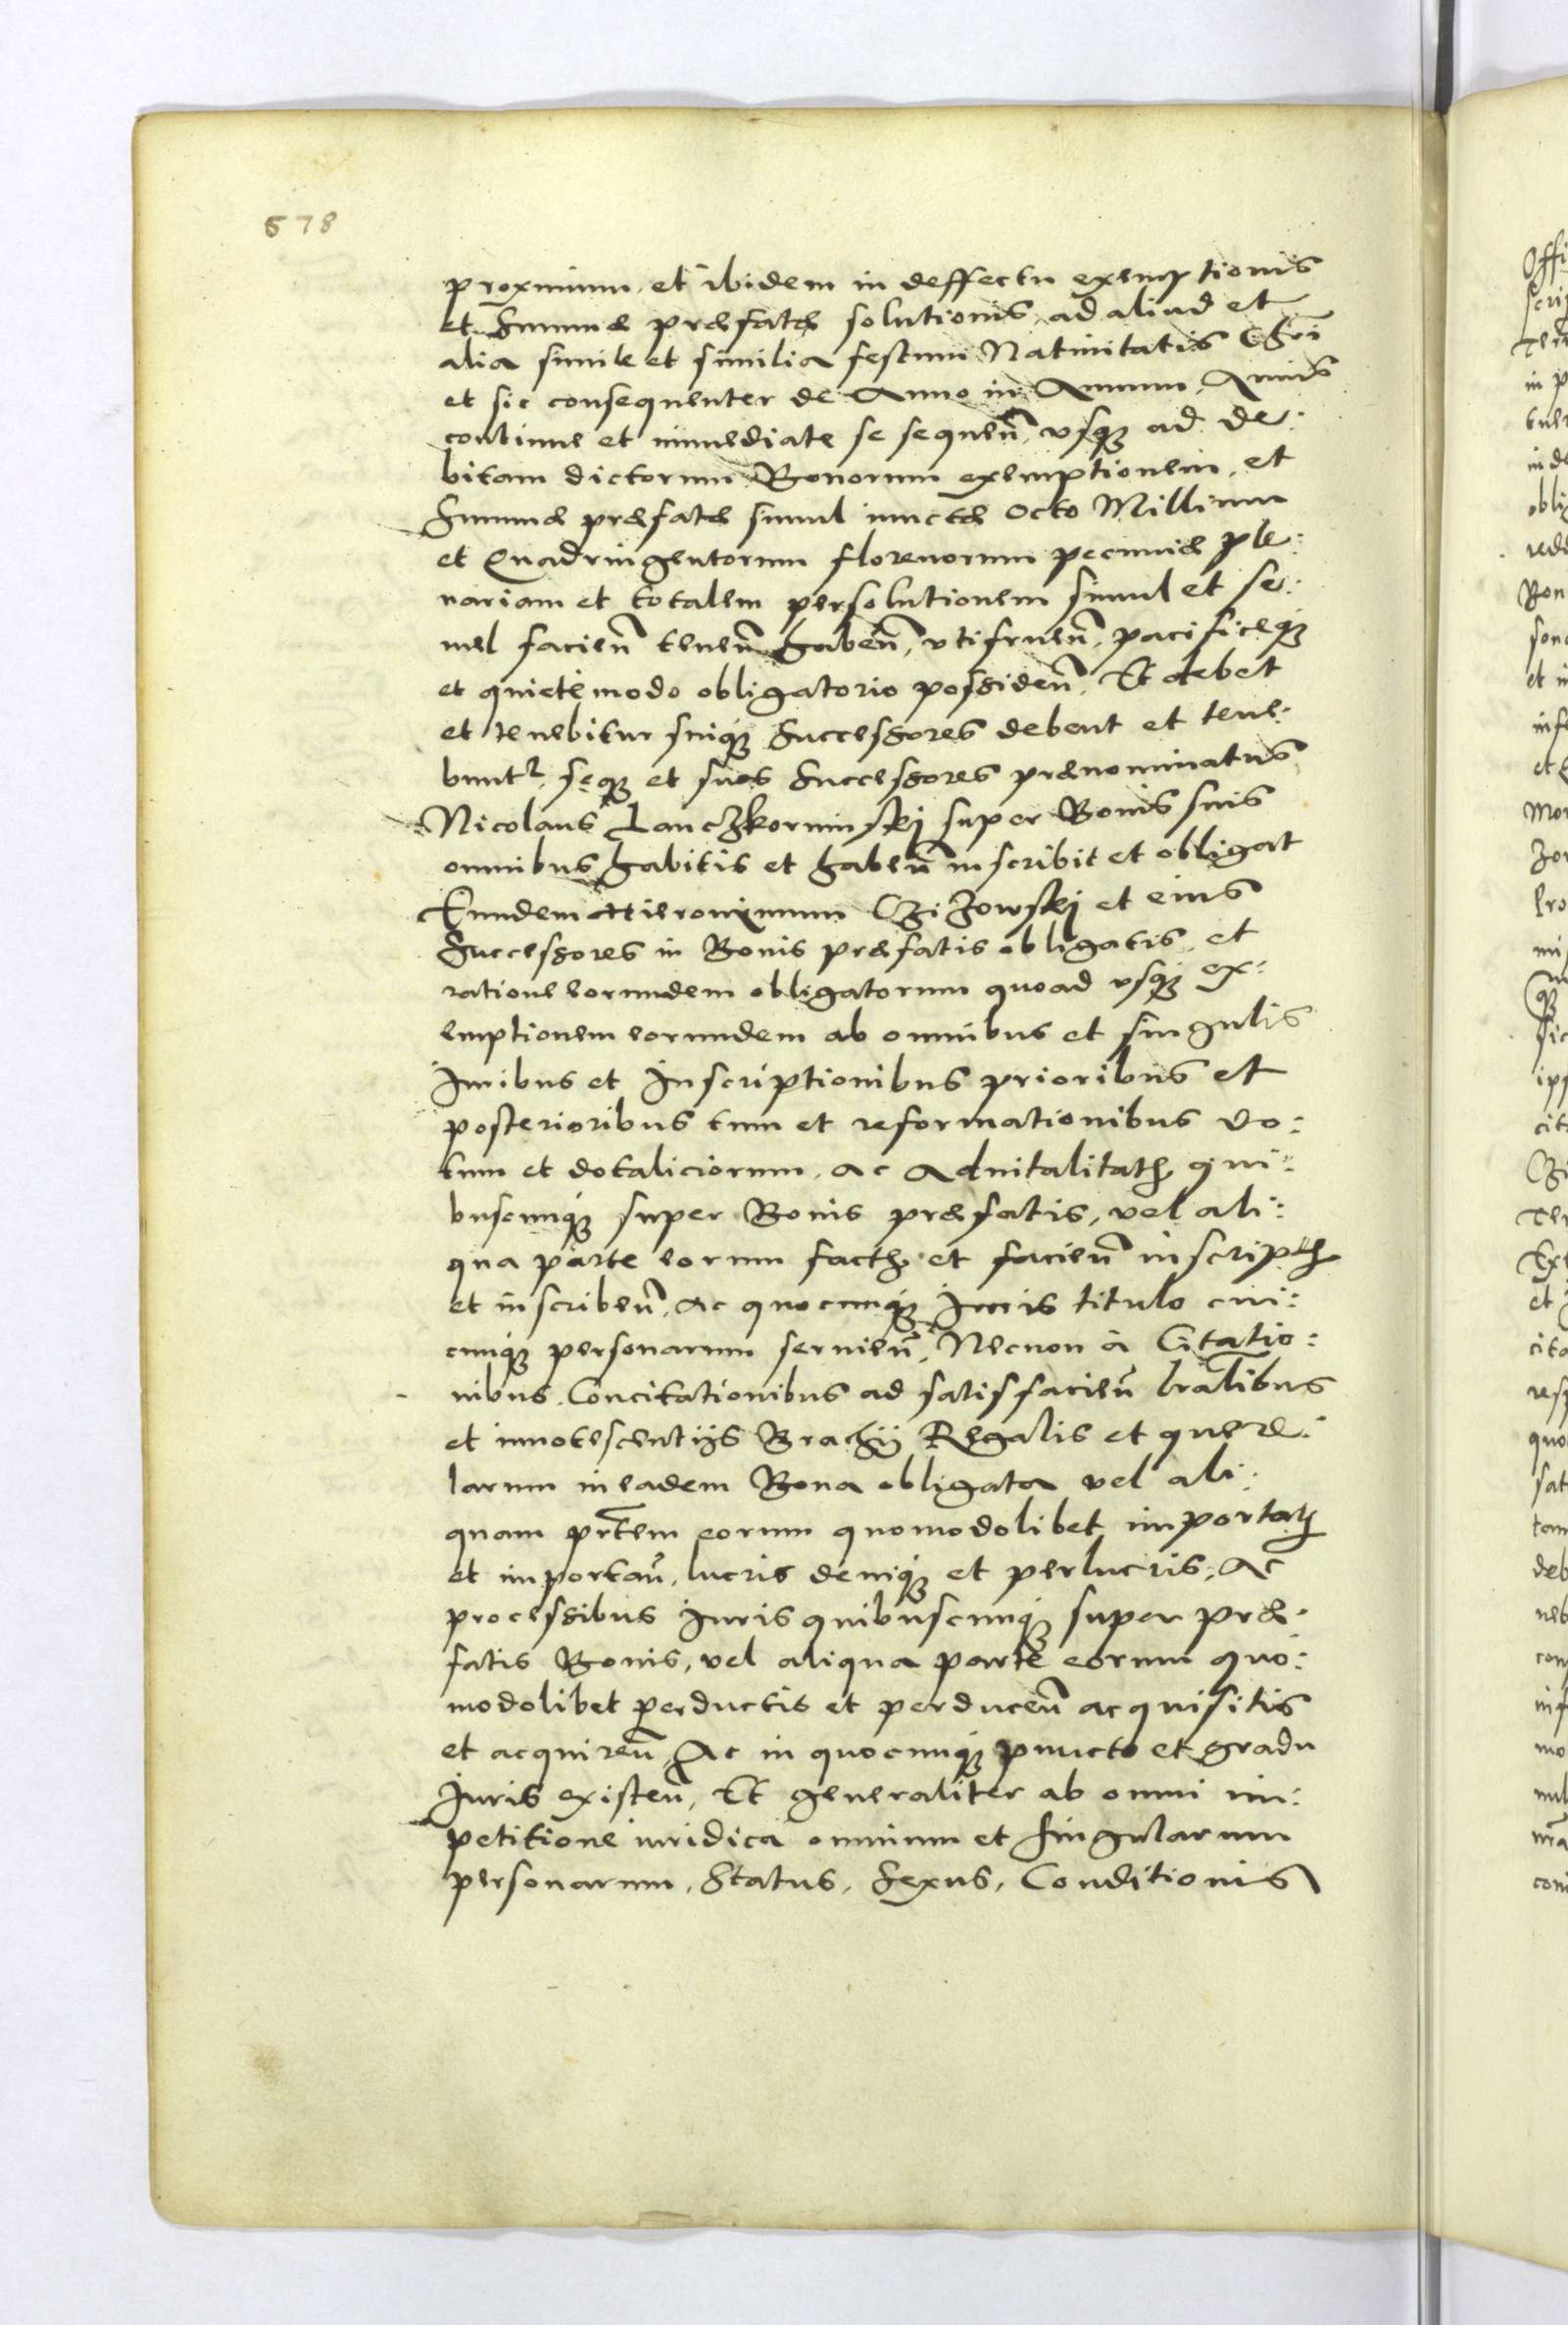 578
proximum, et ibidem in deffectu exemptionis
et Summæ præfatæ solutionis, ad aliud et
alia simile et similia festum Natiuitatis Chri
et sic consequenter de Anno in Annum, Annis
continue et immediate se sequeñ, vsq; ad de:
bitam dictorum Bonorum exemptionem, et
Summæ præfatæ simul iunctæ Octo Millium
et Quadringentorum florenorum pecuniæ ple:
nariam et totalem persolutionem simul et se:
mel facieñ teneñ habeñ, vtifrueñ, pacificeq;
et quiete modo obligatorio possideñ, Et debet
et tenebitur suiq; Successores debent et tene:
bunt, seq; et suos Successores prænominatus
Nicolaus Lanczkorunskj super Bonis suis
omnibus habitis et habeñ inscribit et obligat
Eundem Hieronimum Czizowskj et eius
Successores in Bonis præfatis obligatis, et
ratione eorundem obligatorum quoad vsq; ex:
emptionem eorundem ab omnibus et singulis
Juribus et Inscriptionibus prioribus et
posterioribus tum et reformationibus do:
tum et dotaliciorum, ac Aduitalitat; qui:
buscunq; super Bonis præfatis, vel ali:
qua parte eorum fact; et facieñ inscript;
et inscribeñ, ac quocunq; Juris titulo cui:
cunq; personarum serviеñ, Necnon à Citatio:
nibus, Concitationibus ad satisfacieñ lralibus
et innotescentijs Brachij Regalis et quere:
larum in eadem Bona obligata vel ali:
quam prtem eorum quomodolibet importat;
et importañ, lucris deniq; et perlucris, Ac
processibus Juris quibuscunq; super præ:
fatis Bonis, vel aliqua parte eorum quo:
modolibet perductis et perduceñ acquisitis
et acquireñ, Ac in quocunq; puncto et gradu
Juris existeñ, Et generaliter ab omni im:
petitione iuridica omnium et Singularum
personarum, Status, Sexus, Conditionis